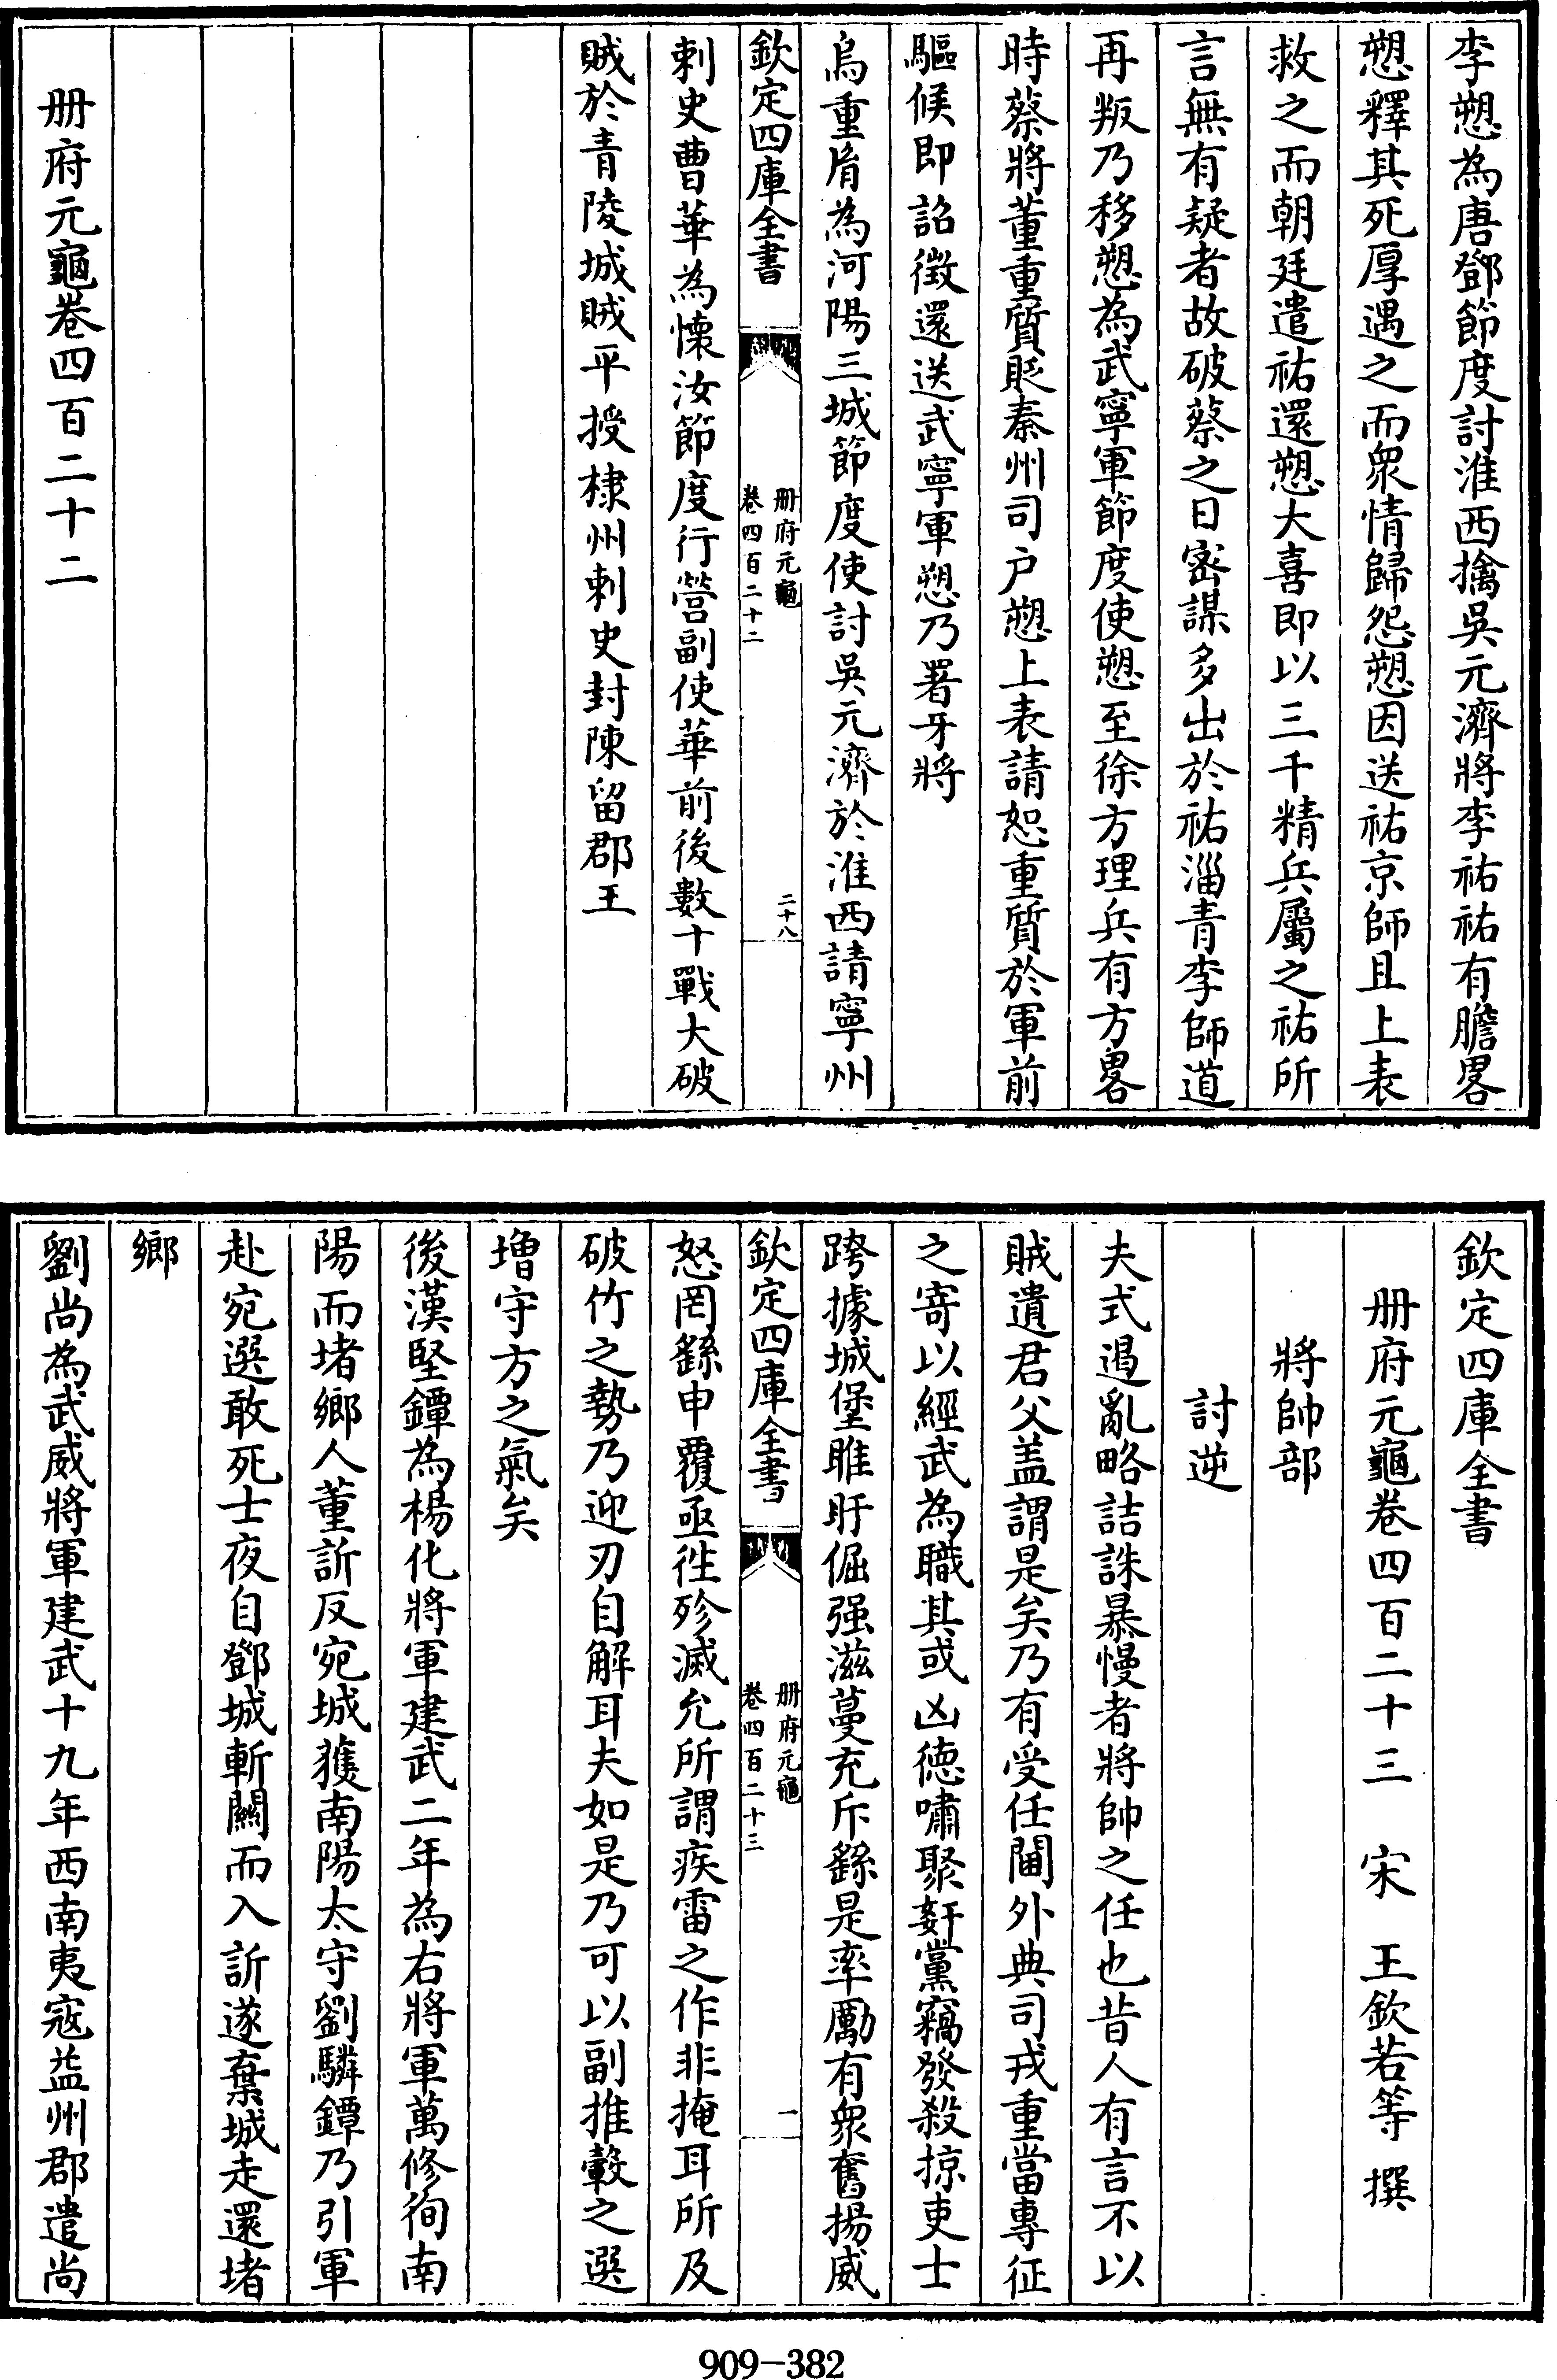 李愬為唐鄧節度討淮西擒吳元濟將李祐祐有膽畧
愬釋其死厚遇之而衆情歸怨愬因送祐京師且上表
救之而朝廷遣祐還愬大喜即以三千精兵屬之祐所
言無有疑者故破蔡之日宻謀多出於祐淄青李師道
再叛乃移愬為武寧軍節度使愬至徐方理兵有方畧
時蔡將董重質貶秦州司户愬上表請恕重質於軍前
驅候即詔徴還送武寧軍愬乃署牙將
烏重胤為河陽三城節度使討吳元濟於淮西請寧州
欽定四庫全書
冊府元龜
卷四百二十二
二十八
刺史曹華為懐汝節度行營副使華前後數十戰大破
賊於青陵城賊平授棣州刺史封陳留郡王
冊府元龜卷四百二十二
欽定四庫全書
冊府元龜卷四百二十三 宋 王欽若等 撰
將帥部
討逆
夫式遏亂略詰誅暴慢者將帥之任也昔人有言不以
賊遺君父盖謂是矣乃有受任閫外典司戎重當專征
之寄以經武為職其或凶徳嘯聚姧黨竊發殺掠吏士
跨據城堡睢盱倔强滋蔓充斥繇是率厲有衆奮揚威
欽定四庫全書
冊府元龜
卷四百二十三
一
怒罔繇申覆亟徃殄滅允所謂疾雷之作非掩耳所及
破竹之勢乃迎刃自解耳夫如是乃可以副推轂之選
増守方之氣矣
後漢堅鐔為楊化將軍建武二年為右將軍萬修徇南
陽而堵鄉人董訢反宛城獲南陽太守劉驎鐔乃引軍
赴宛選敢死士夜自鄧城斬關而入訢遂棄城走還堵
鄉
劉尚為武威將軍建武十九年西南夷寇益州郡遣尚
909-382